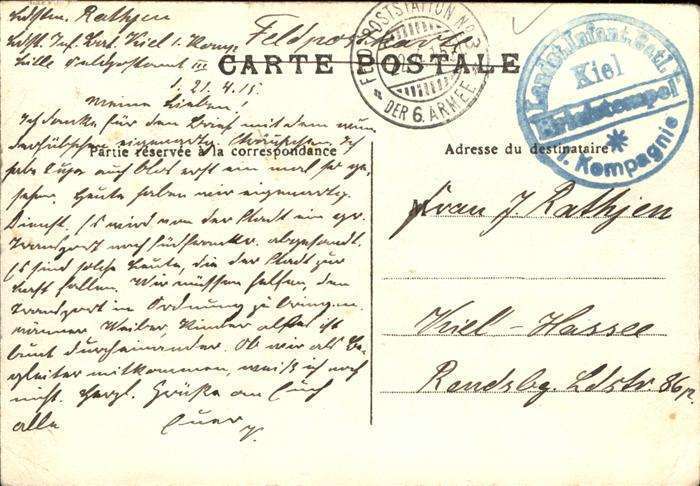 Ldstm. Rathjen
Ldst. Inf. Batl. Kiel 1. Komp.
Feldpostkarte
Lille Feldpostamt III
CARTE POSTALE
1. 21.4.15.
FELDPOSTSTATION No. 3
DER 6. ARMEE
Landst. Infant. Batl.
Kiel
Briefstempel
1. Kompagnie
Partie réservée à la correspondance
Adresse du destinataire
Meine Lieben!
Ich danke für den Brief mit dem wun
derhübschen eigenartig.
habe auch erst ein mal so ge-
sehen. Heute haben wir eigenartig.
Dienst. Es wird von der Stadt ein gr.
Transport nach Südfrankr. abgesandt.
Es sind solche Leute, die der Stadt zur
Last fallen. Wir müssen helfen, den
Transport in Ordnung zu bringen.
Männer Weiber, Kinder alles ist
bunt durcheinander. Ob wir als Be-
gleiter mitkommen, weiß ich noch
nicht. Herzl. Grüße an Euch
alle Euer
J.
Frau J. Rathjen
Kiel - Hassee
Rendsbg. Ldstr. 86